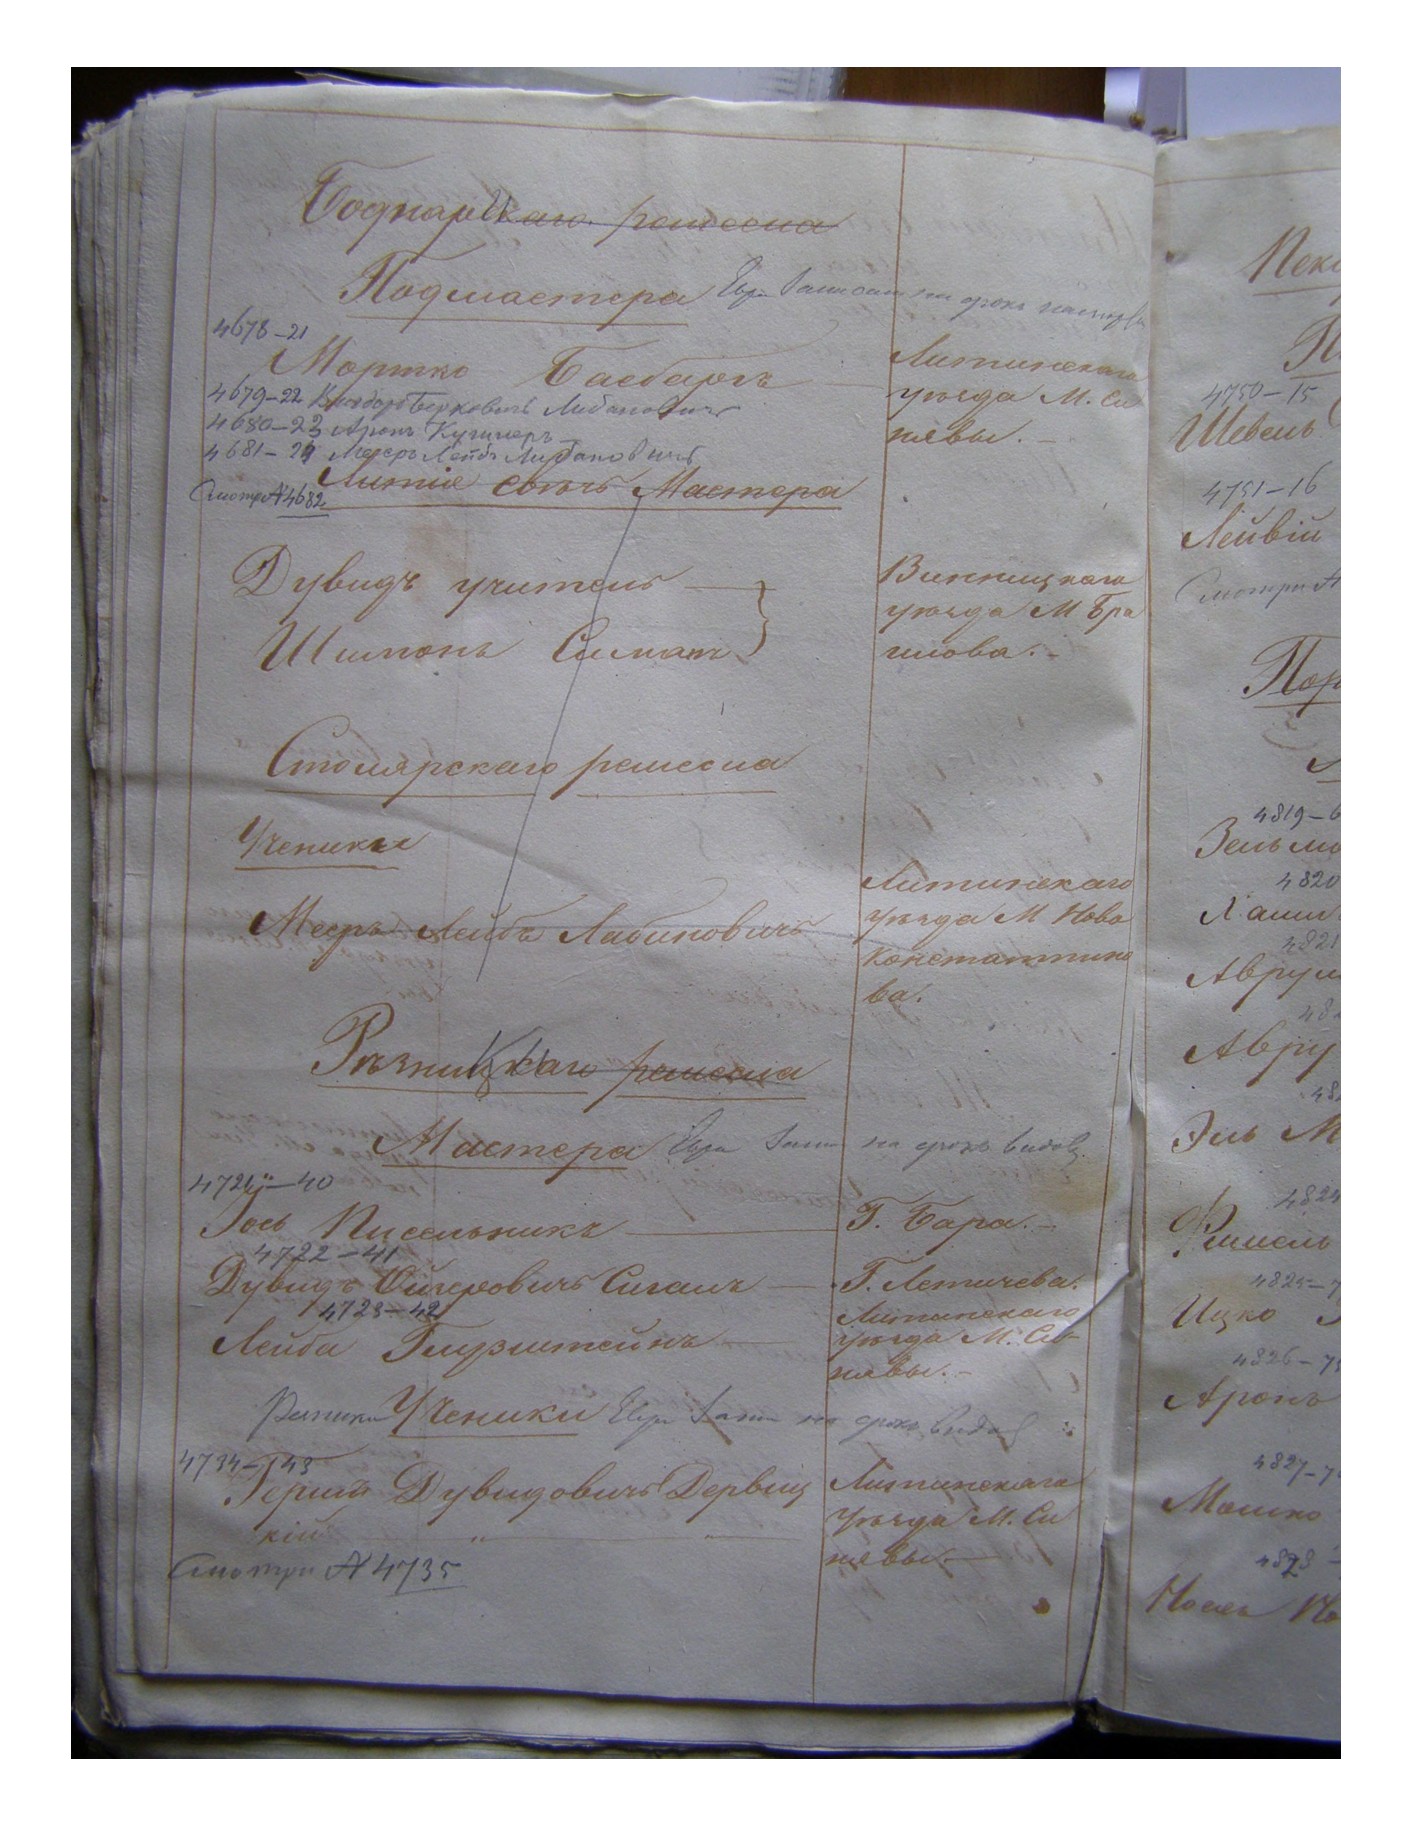 Боднарскаго ремесла
Подмастера Евр на срокъ
4678-21
Мортко Басбаргъ
Литинскаго
уѣзда М. Си
нявы.
4679-22 Берковичь Либановичъ
4680-23 Аронъ Кушнеръ
4681-24 Мееръ Лейбъ Либановичъ
Литіе свѣчъ Мастера
Смотри № 4682
Дувидъ учитель
Шимонъ
Винницкаго
уѣзда М Бра
илова.
Столярскаго ремесла
Ученики
Мееръ Лейбъ Лабиновичъ
Литинскаго
уѣзда М Ново
константино
ва.
Рѣзницкаго ремесла
Мастера Евр на срокъ видов
4721-40
Іось Кисельникъ
Г. Бара.
4722-41
Дувидъ Ойзеровичъ Сигалъ
Г. Летичева.
4723-42
Лейба Глузштейнъ
Литинскаго
уѣзда М. Си-
нявы.
Рѣзники Ученики Евр на срокъ видов
4734-43
Гершъ Дувидовичъ Дервиц
кій
Литинскаго
уѣзда М. Си
нявы.
Смотри № 4735
4750-15
Шевель
4751-16
Лейвій
Смотри №
4819-6
Зельма
4820
4821
Аврум
Авру
Эль М
4824
Фишель
4825-7
Ицко
4826-7
Аронъ
4827-7
Мошко
4828